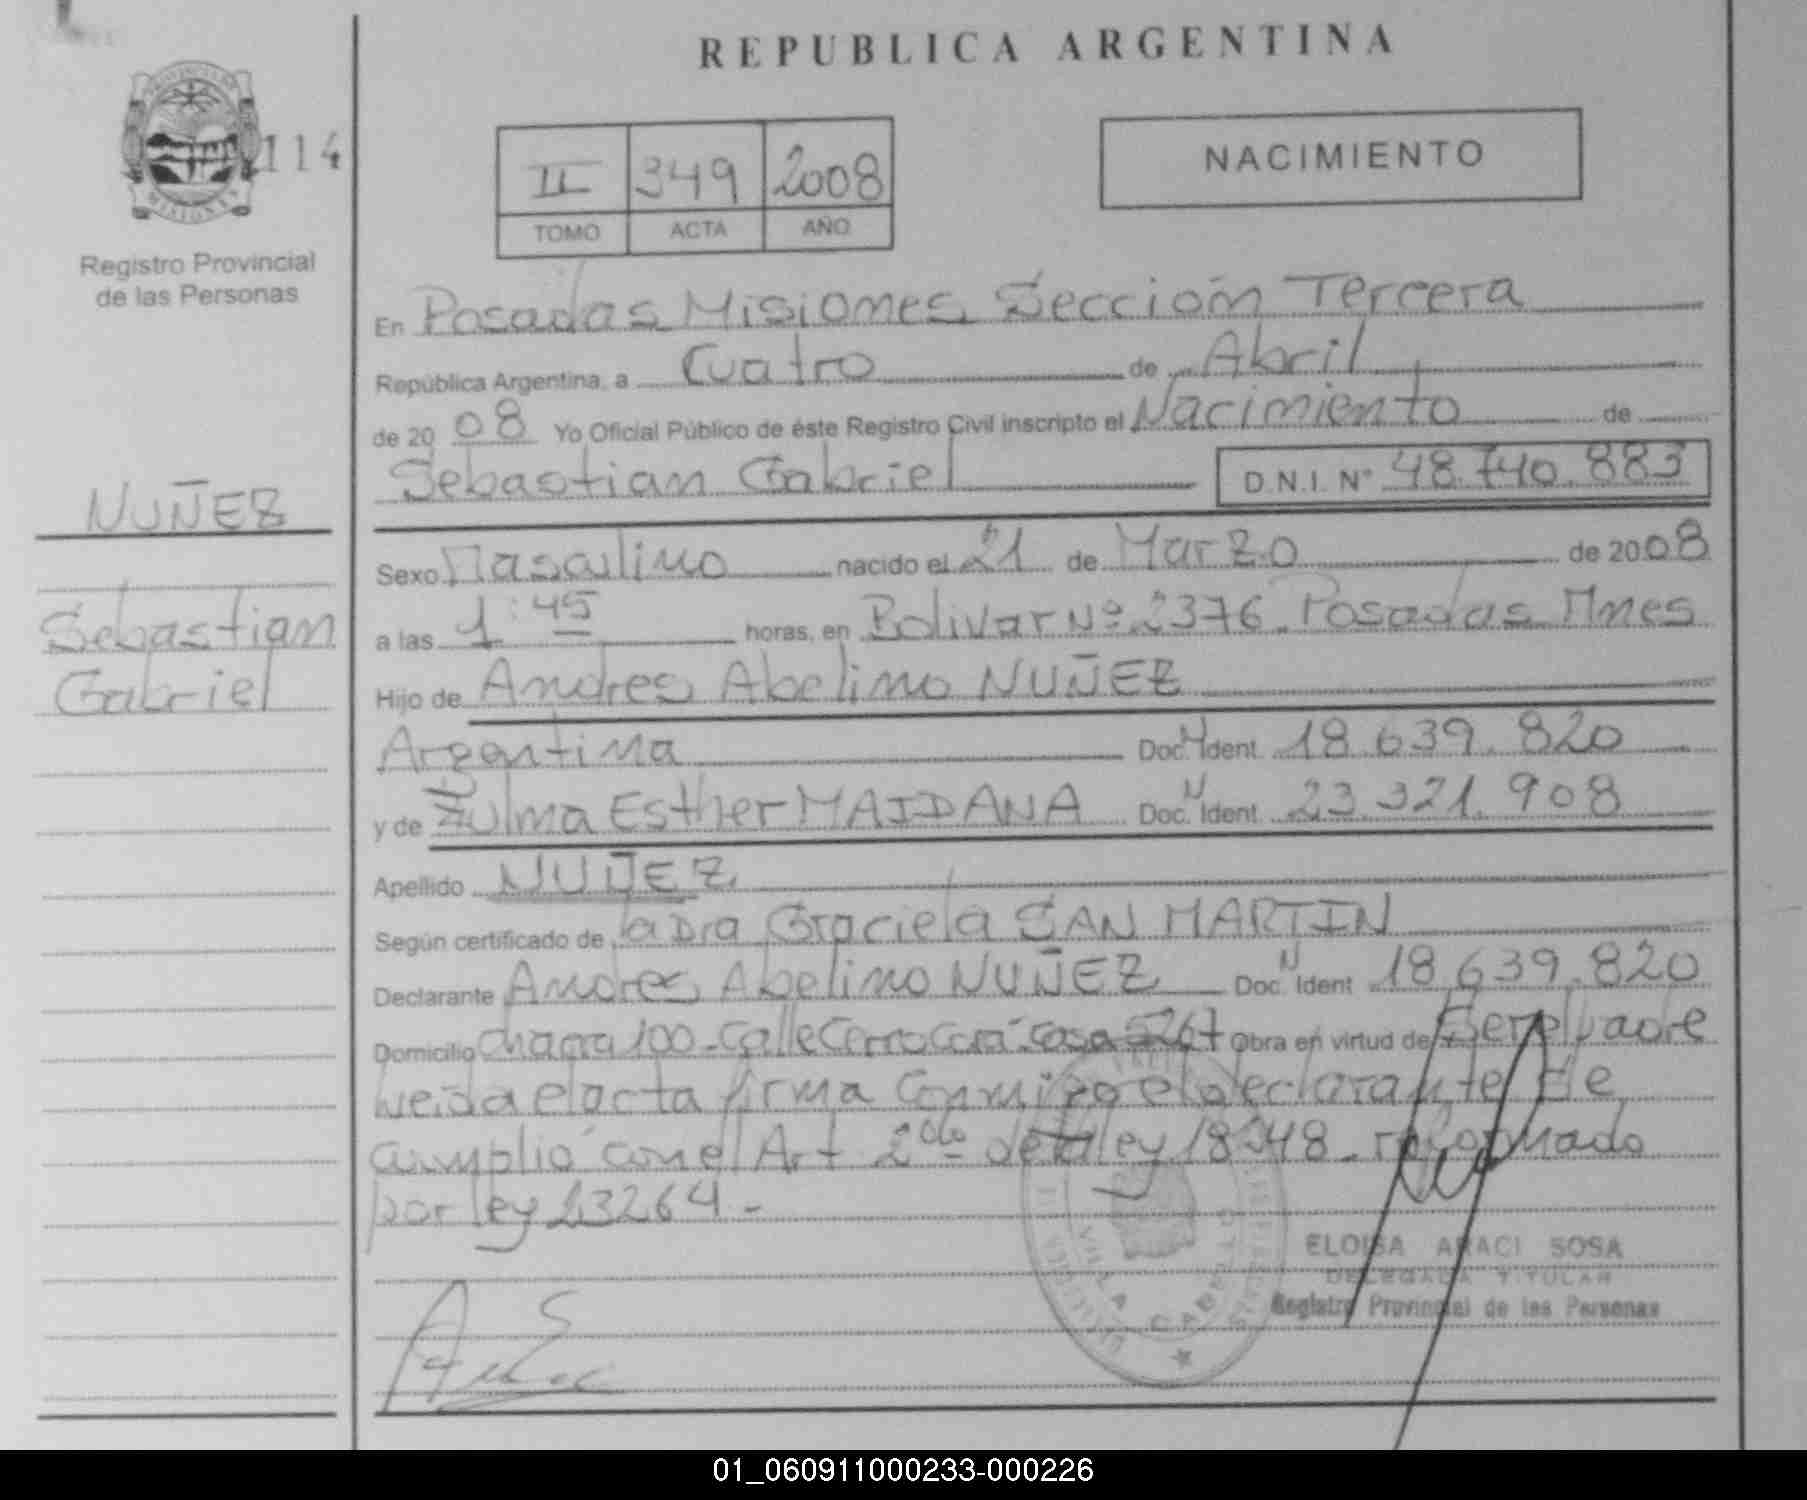 REPUBLICA ARGENTINA
PROVINCIA DE
MISIONES
114
Registro Provincial
de las Personas
II 349 2008
TOMO ACTA AÑO
NACIMIENTO
En Posadas Misiones Sección Tercera
República Argentina, a Cuatro de Abril
de 20 08 Yo Oficial Público de éste Registro Civil inscripto el Nacimiento de
Sebastian Gabriel D.N.I. Nº 48.740.883
NUÑEZ
Sebastian
Gabriel
Sexo Masculino nacido el 21 de Marzo de 2008
a las 1:45 horas, en Bolivar Nº 2376 Posadas Mnes
Hijo de Andres Abelino NUÑEZ
Argentina Doc. N Ident. 18.639.820
y de Zulma Esther MAIDANA Doc. N Ident. 23.321.908
Apellido NUÑEZ
Según certificado de la Dra Graciela SAN MARTIN
Declarante Andres Abelino NUÑEZ Doc. N Ident 18.639.820
Domicilio chacra 100 - Calle Cerro Corá - casa 5267 Obra en virtud de Ser el padre
Leida el acta firma Conmigo el declarante Se
cumplió con el Art 2do de la ley 18248 - reformado
por ley 23264 -
ELOISA ARACI SOSA
DELEGADA TITULAR
Registro Provincial de las Personas
VILLA CABELLO
01_060911000233-000226